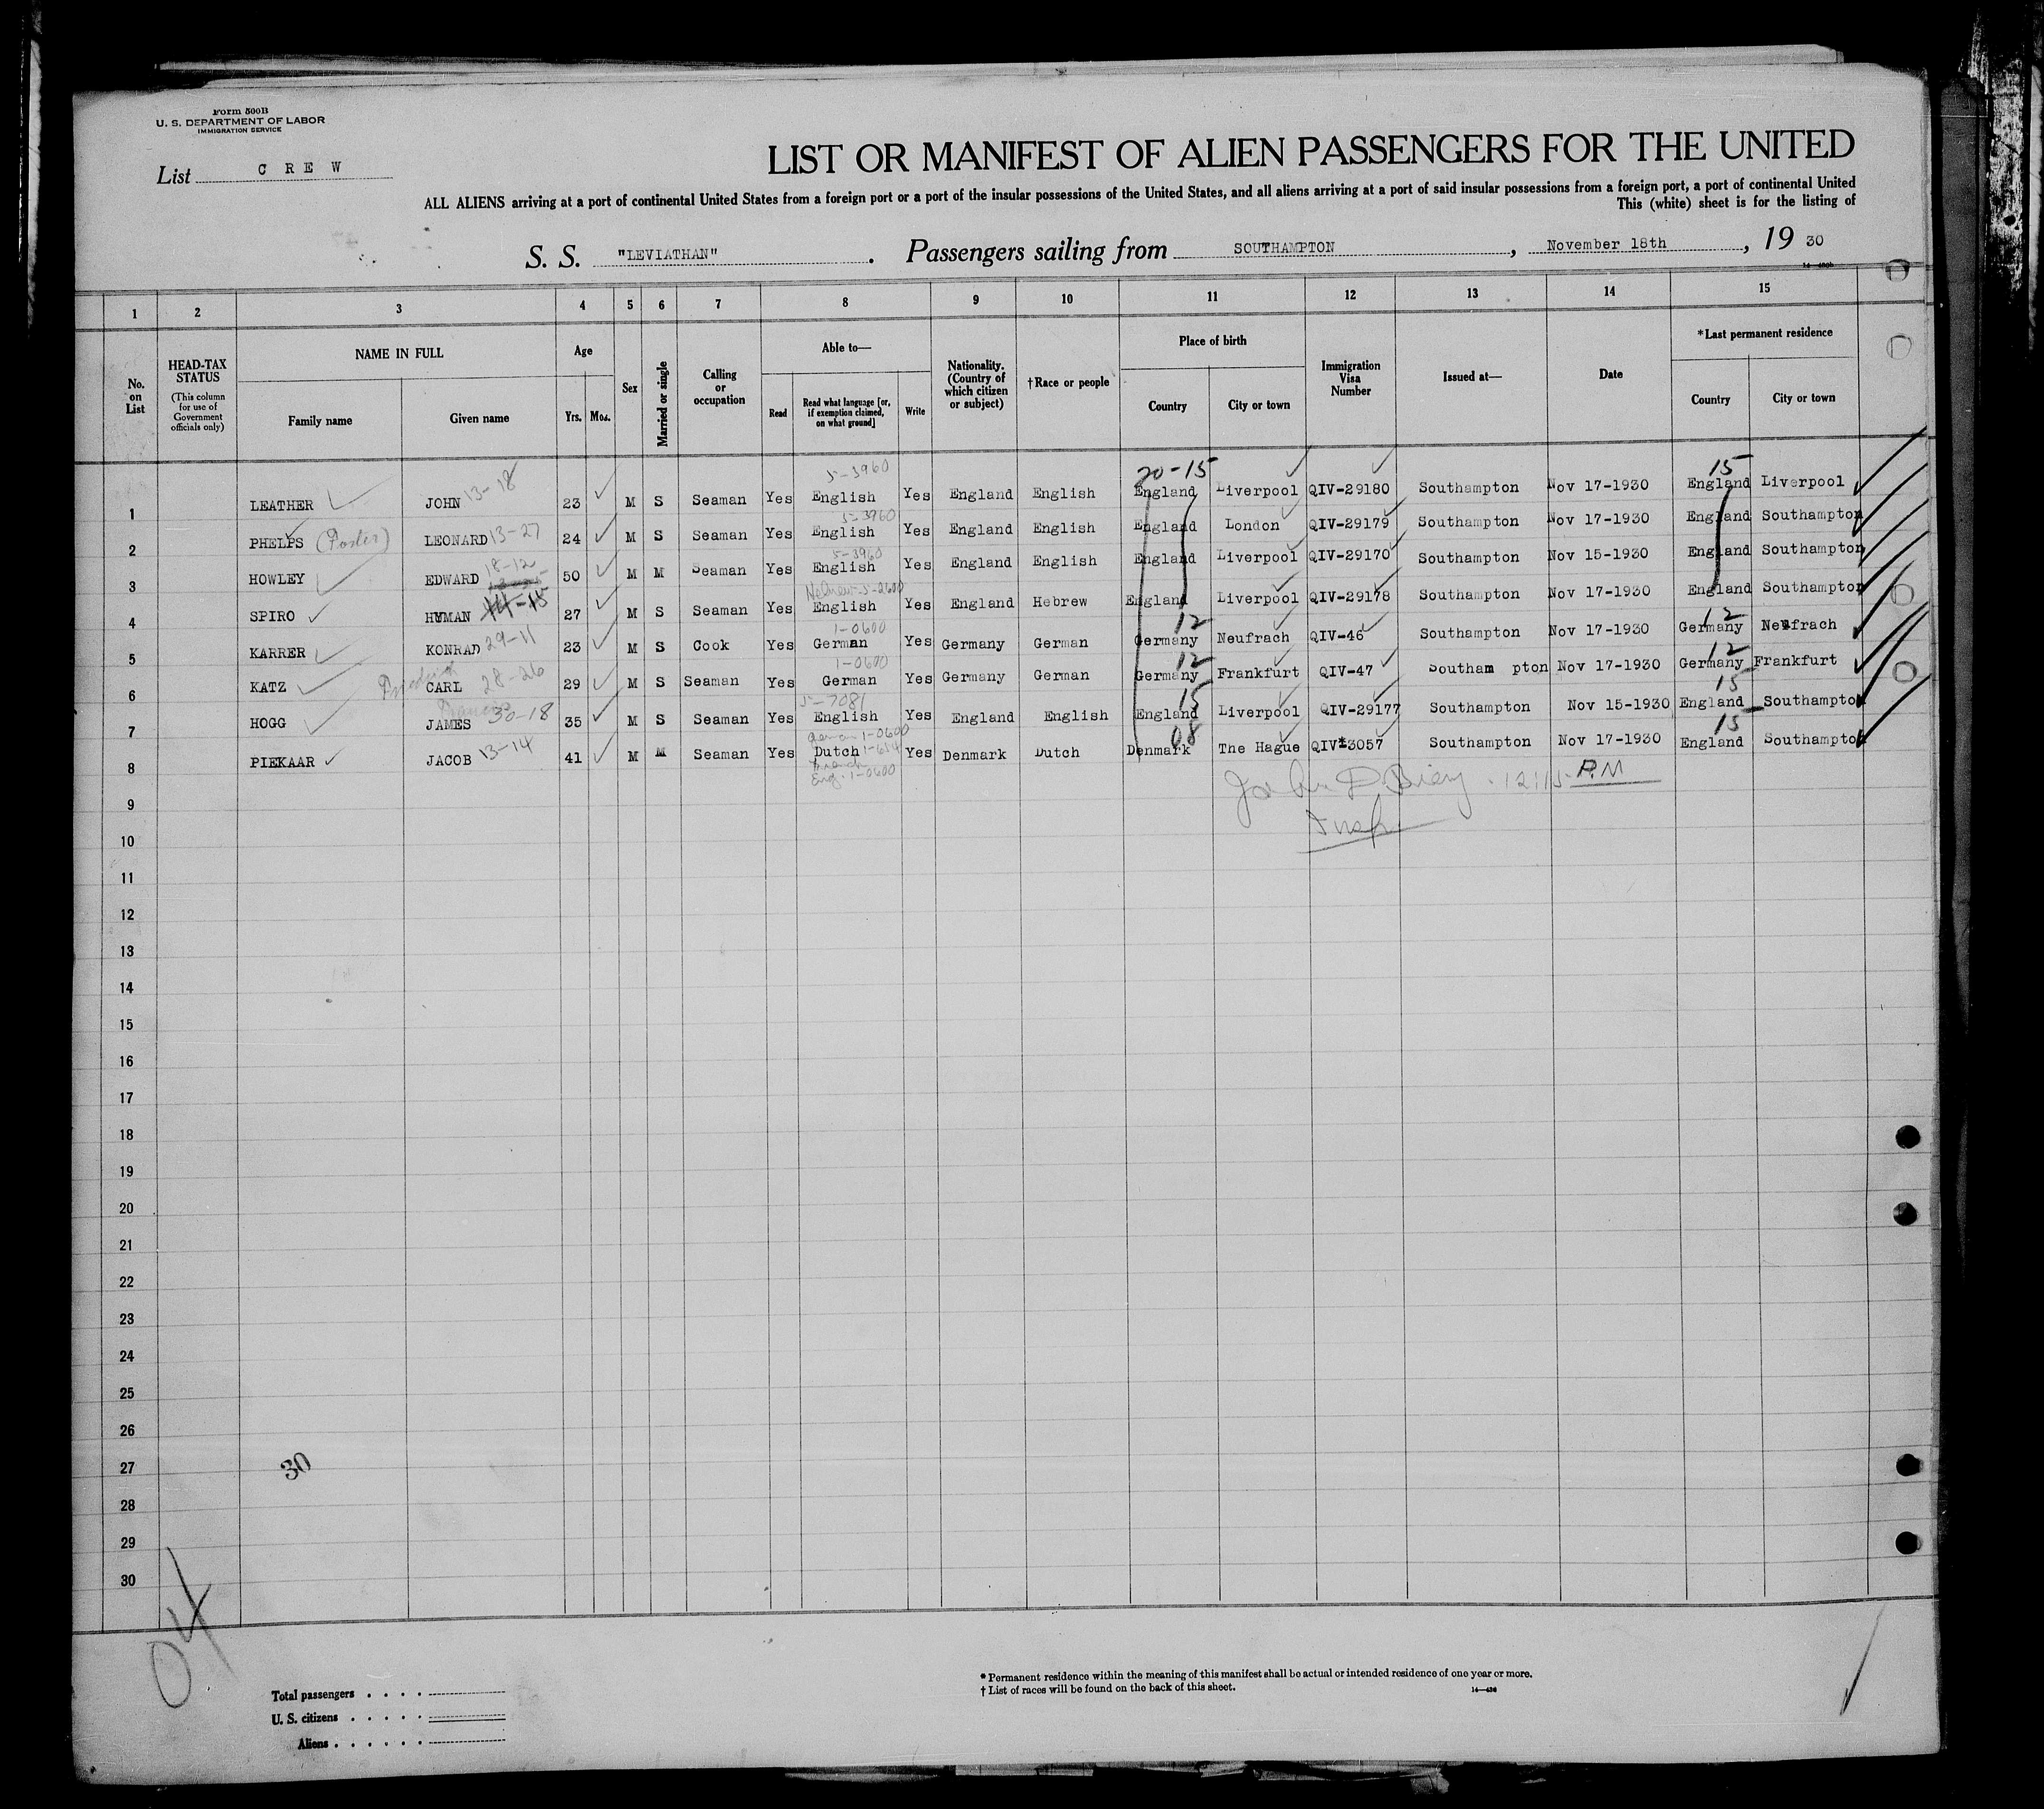 Form 500B
U. S. DEPARTMENT OF LABOR
IMMIGRATION SERVICE
List CREW
LIST OR MANIFEST OF ALIEN PASSENGERS FOR THE UNITED
ALL ALIENS arriving at a port of continental United States from a foreign port or a port of the insular possessions of the United States, and all aliens arriving at a port of said insular possessions from a foreign port, a port of continental United
This (white) sheet is for the listing of
S. S. "LEVIATHAN". Passengers sailing from SOUTHAMPTON, November 18th, 19 30
1 2 3 4 5 6 7 8 9 10 11 12 13 14 15
No. on List
HEAD-TAX STATUS (This column for use of Government officials only)
NAME IN FULL
Family name
Given name
Age
Yrs. Mos.
Sex
Married or single
Calling or occupation
Able to—
Read
Read what language [or, if exemption claimed, on what ground]
Write
Nationality. (Country of which citizen or subject)
†Race or people
Place of birth
Country
City or town
Immigration Visa Number
Issued at—
Date
*Last permanent residence
Country
City or town
5-3960 20-15 15
1 LEATHER JOHN 13-18 23 M S Seaman Yes English Yes England English England Liverpool QIV-29180 Southampton Nov 17-1930 England Liverpool
5-3960
2 PHELPS (Porter) LEONARD 13-27 24 M S Seaman Yes English Yes England English England London QIV-29179 Southampton Nov 17-1930 England Southampton
18-12 5-3960
3 HOWLEY EDWARD 50 M M Seaman Yes English Yes England English England Liverpool QIV-29170 Southampton Nov 15-1930 England Southampton
Hebrew-5-2600
4 SPIRO HYMAN 14-15 27 M S Seaman Yes English Yes England Hebrew England Liverpool QIV-29178 Southampton Nov 17-1930 England Southampton
1-0600 12 12
5 KARRER KONRAD 29-11 23 M S Cook Yes German Yes Germany German Germany Neufrach QIV-46 Southampton Nov 17-1930 Germany Neufrach
1-0600 12 12
6 KATZ CARL 28-26 29 M S Seaman Yes German Yes Germany German Germany Frankfurt QIV-47 Southam pton Nov 17-1930 Germany Frankfurt
5-7081 15 15
7 HOGG JAMES 30-18 35 M S Seaman Yes English Yes England English England Liverpool QIV-29177 Southampton Nov 15-1930 England Southampton
German 1-0600 08 15
8 PIEKAAR JACOB 13-14 41 M M Seaman Yes Dutch Yes Denmark Dutch Denmark The Hague QIV-3057 Southampton Nov 17-1930 England Southampton
French
Eng. 1-0600
12:15 P.M
Insp.
9
10
11
12
13
14
15
16
17
18
19
20
21
22
23
24
25
26
27 30
28
29
30
04
Total passengers
U. S. citizens
Aliens
* Permanent residence within the meaning of this manifest shall be actual or intended residence of one year or more.
† List of races will be found on the back of this sheet.